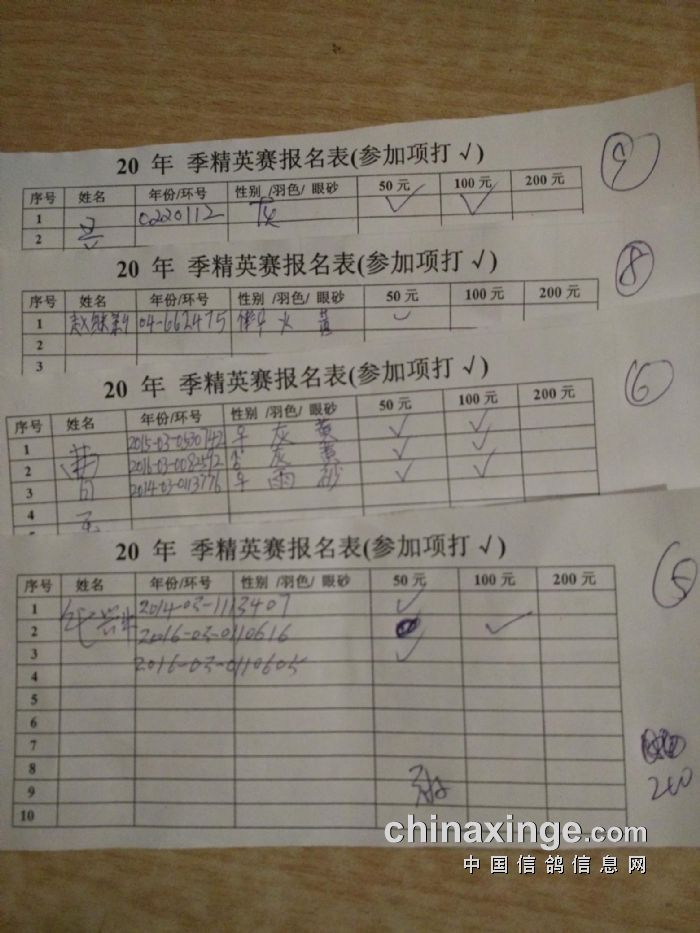 20 年 季精英赛报名表(参加项打 √)
9
序号 姓名 年份/环号 性别 /羽色/ 眼砂 50 元 100 元 200 元
1 0220112 √ √
2
20 年 季精英赛报名表(参加项打 √)
8
序号 姓名 年份/环号 性别 /羽色/ 眼砂 50 元 100 元 200 元
1 04-662475 火 黄 √
2
3
20 年 季精英赛报名表(参加项打 √)
6
序号 姓名 年份/环号 性别 /羽色/ 眼砂 50 元 100 元 200 元
1 2015-03-0530742 灰 黄 √ √
2 2016-03-0082592 灰 黄 √ √
3 2014-03-0113776 雨 砂 √ √
4
20 年 季精英赛报名表(参加项打 √)
5
序号 姓名 年份/环号 性别 /羽色/ 眼砂 50 元 100 元 200 元
1 2014-03-1113407 √
2 2016-03-0110616 √
3 2016-03-0110605 √
4
5
6
7
8
9
10
chinaxinge.com
中国信鸽信息网